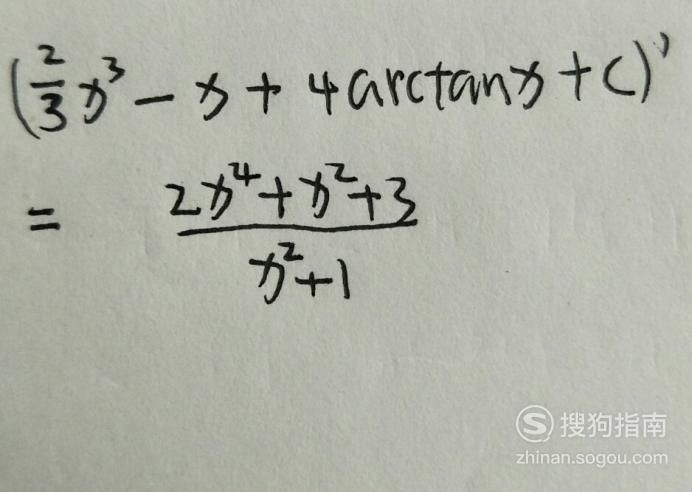 (2/3 x³ - x + 4arctanx + C)'
= (2x⁴+x²+3)/(x²+1)
S 搜狗指南
zhinan.sogou.com